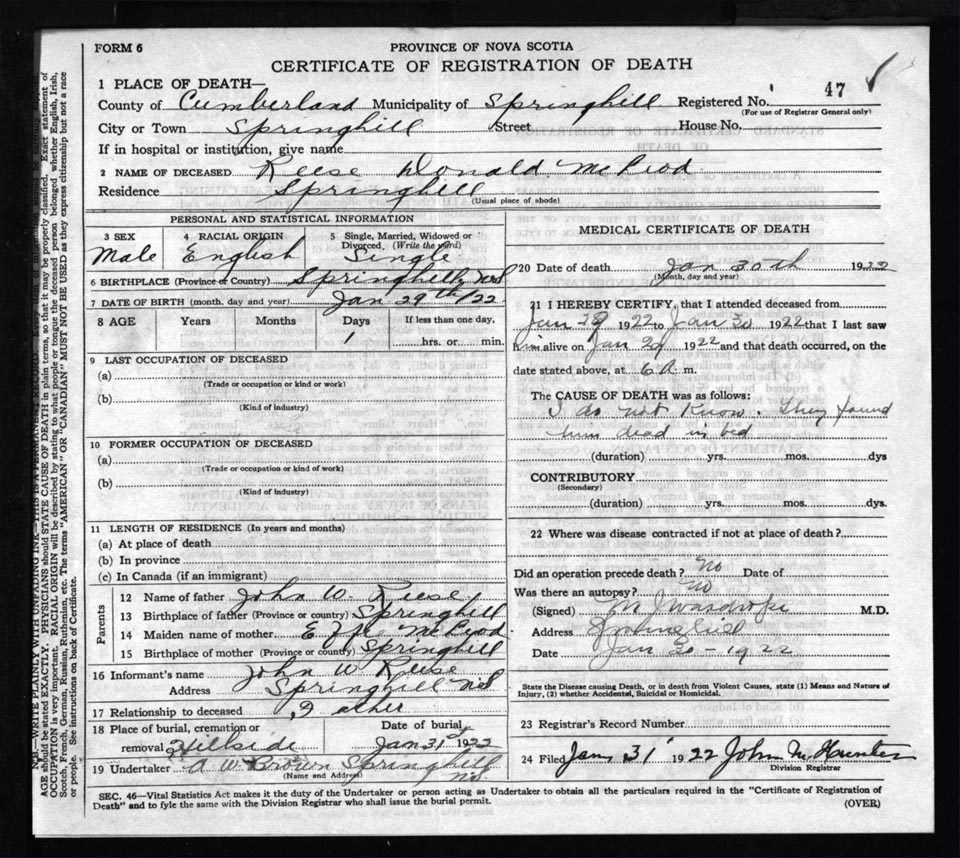 FORM 6
PROVINCE OF NOVA SCOTIA
CERTIFICATE OF REGISTRATION OF DEATH
47 ✓
1 PLACE OF DEATH—
County of Cumberland Municipality of Springhill Registered No.
(For use of Registrar General only)
City or Town Springhill Street House No.
If in hospital or institution, give name
2 NAME OF DECEASED Reese Donald McLeod
Residence Springhill
(Usual place of abode)
PERSONAL AND STATISTICAL INFORMATION
3 SEX 4 RACIAL ORIGIN 5 Single, Married, Widowed or Divorced, (Write the word)
Male English Single
6 BIRTHPLACE (Province or Country) Springhill NS
7 DATE OF BIRTH (month, day and year) Jan 29th/22
8 AGE Years Months Days If less than one day,
1 hrs. or min.
9 LAST OCCUPATION OF DECEASED
(a)
(Trade or occupation or kind or work)
(b)
(Kind of industry)
10 FORMER OCCUPATION OF DECEASED
(a)
(Trade or occupation or kind of work)
(b)
(Kind of industry)
11 LENGTH OF RESIDENCE (In years and months)
(a) At place of death
(b) In province
(c) In Canada (if an immigrant)
Parents
12 Name of father John W. Reese
13 Birthplace of father (Province or country) Springhill
14 Maiden name of mother McLeod
15 Birthplace of mother (Province or country) Springhill
16 Informant's name John W Reese
Address Springhill NS
17 Relationship to deceased Father
18 Place of burial, cremation or Date of burial
removal Hillside Jan 31st 1922
19 Undertaker A W Brown Springhill
(Name and Address) NS
MEDICAL CERTIFICATE OF DEATH
20 Date of death Jan 30th 1922
(Month, day and year)
21 I HEREBY CERTIFY, that I attended deceased from
Jan 29 1922 to Jan 30 1922 that I last saw
him alive on Jan 29 1922 and that death occurred, on the
date stated above, at 6 A m.
The CAUSE OF DEATH was as follows:
I do not know. They found
him dead in bed
(duration) yrs. mos. dys
CONTRIBUTORY
(Secondary)
(duration) yrs. mos. dys.
22 Where was disease contracted if not at place of death?
Did an operation precede death? No Date of
Was there an autopsy? No
(Signed) M J Wardrope M.D.
Address Springhill
Date Jan 30 - 1922
State the Disease causing Death, or in death from Violent Causes, state (1) Means and Nature of
Injury, (2) whether Accidental, Suicidal or Homicidal.
23 Registrar's Record Number
24 Filed Jan 31 1922 John M Hunter
Division Registrar
SEC. 46—Vital Statistics Act makes it the duty of the Undertaker or person acting as Undertaker to obtain all the particulars required in the "Certificate of Registration of
Death" and to fyle the same with the Division Registrar who shall issue the burial permit. (OVER)
WRITE PLAINLY WITH UNFADING INK—THIS IS A PERMANENT RECORD.
AGE should be stated EXACTLY. PHYSICIANS should STATE CAUSE OF DEATH in plain terms, so that it may be properly classified. Exact statement of
OCCUPATION is very important. RACIAL ORIGIN will be described by stating to what people or tongue the deceased person belonged, whether English, Irish,
Scotch, French, German, Russian, Ruthenian, etc. The terms "AMERICAN" OR "CANADIAN" MUST NOT BE USED as they express citizenship but not a race
or people. See instructions on back of Certificate.